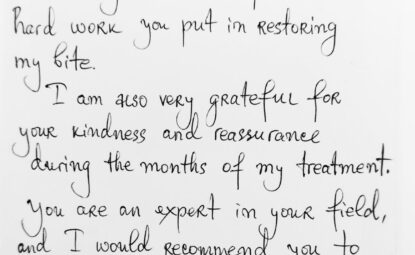 hard work you put in restoring
my bite.
I am also very grateful for
your kindness and reassurance
during the months of my treatment.
You are an expert in your field,
and I would recommend you to